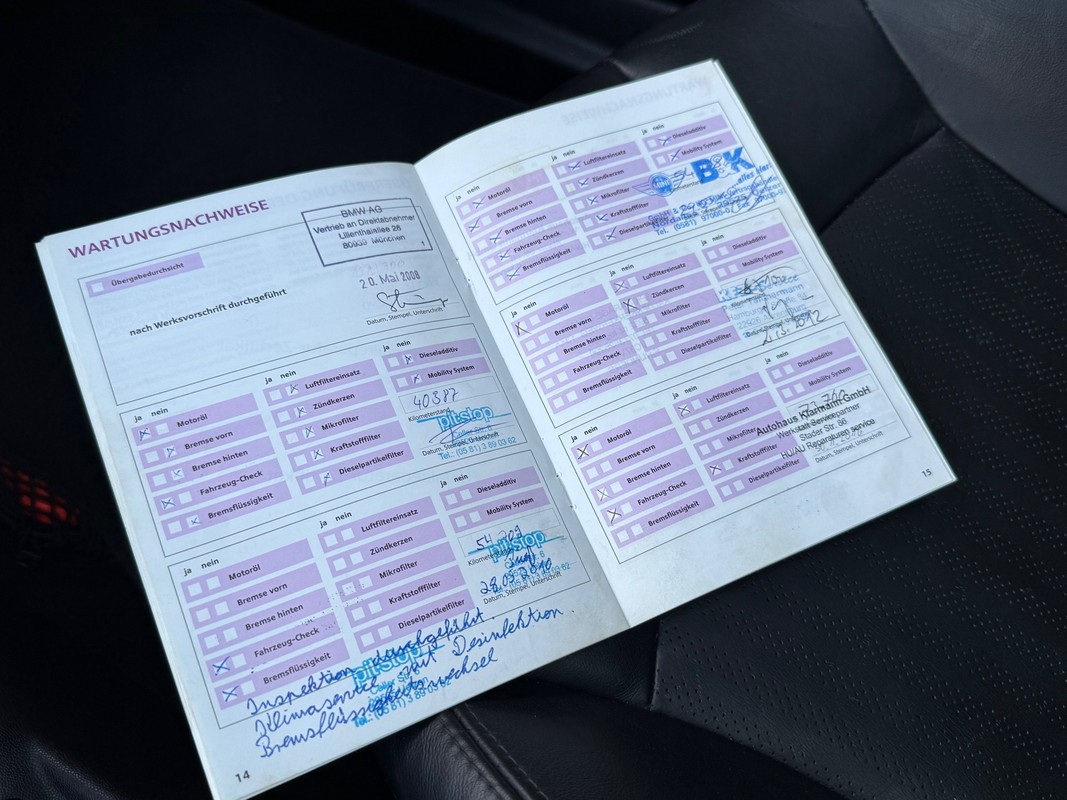 WARTUNGSNACHWEISE
BMW AG
Vertrieb an Direktabnehmer
Lilienthalallee 26
80939 München
Übergabedurchsicht
nach Werksvorschrift durchgeführt
20. Mai 2008
Datum, Stempel, Unterschrift
ja nein
Motoröl
Bremse vorn
Bremse hinten
Fahrzeug-Check
Bremsflüssigkeit
ja nein
Luftfiltereinsatz
Zündkerzen
Mikrofilter
Kraftstofffilter
Dieselpartikelfilter
ja nein
Dieseladditiv
Mobility System
40387
Kilometerstand
pit-stop
Datum, Stempel, Unterschrift
Tel.: (05 81) 3 89 03 62
ja nein
Motoröl
Bremse vorn
Bremse hinten
Fahrzeug-Check
Bremsflüssigkeit
ja nein
Luftfiltereinsatz
Zündkerzen
Mikrofilter
Kraftstofffilter
Dieselpartikelfilter
ja nein
Dieseladditiv
Mobility System
Kilometerstand
pit-stop
Datum, Stempel, Unterschrift
Inspektion durchgeführt
Klimaservice mit Desinfektion.
Bremsflüssigkeitswechsel
pit-stop
Tel.: (05 81) 3 89 03 62
14
ja nein
Motoröl
Bremse vorn
Bremse hinten
Fahrzeug-Check
Bremsflüssigkeit
ja nein
Luftfiltereinsatz
Zündkerzen
Mikrofilter
Kraftstofffilter
ja nein
Dieseladditiv
Mobility System
B&K
alles klar!
ja nein
Motoröl
Bremse vorn
Bremse hinten
Fahrzeug-Check
Bremsflüssigkeit
ja nein
Luftfiltereinsatz
Zündkerzen
Mikrofilter
Kraftstofffilter
Dieselpartikelfilter
ja nein
Dieseladditiv
Mobility System
ja nein
Motoröl
Bremse vorn
Bremse hinten
Fahrzeug-Check
Bremsflüssigkeit
ja nein
Luftfiltereinsatz
Zündkerzen
Mikrofilter
Kraftstofffilter
Dieselpartikelfilter
ja nein
Dieseladditiv
Mobility System
Autohaus Klarmann GmbH
Werkstatt-Servicepartner
Stader Str. 86
HU/AU Reparaturen service
Datum, Stempel, Unterschrift
15